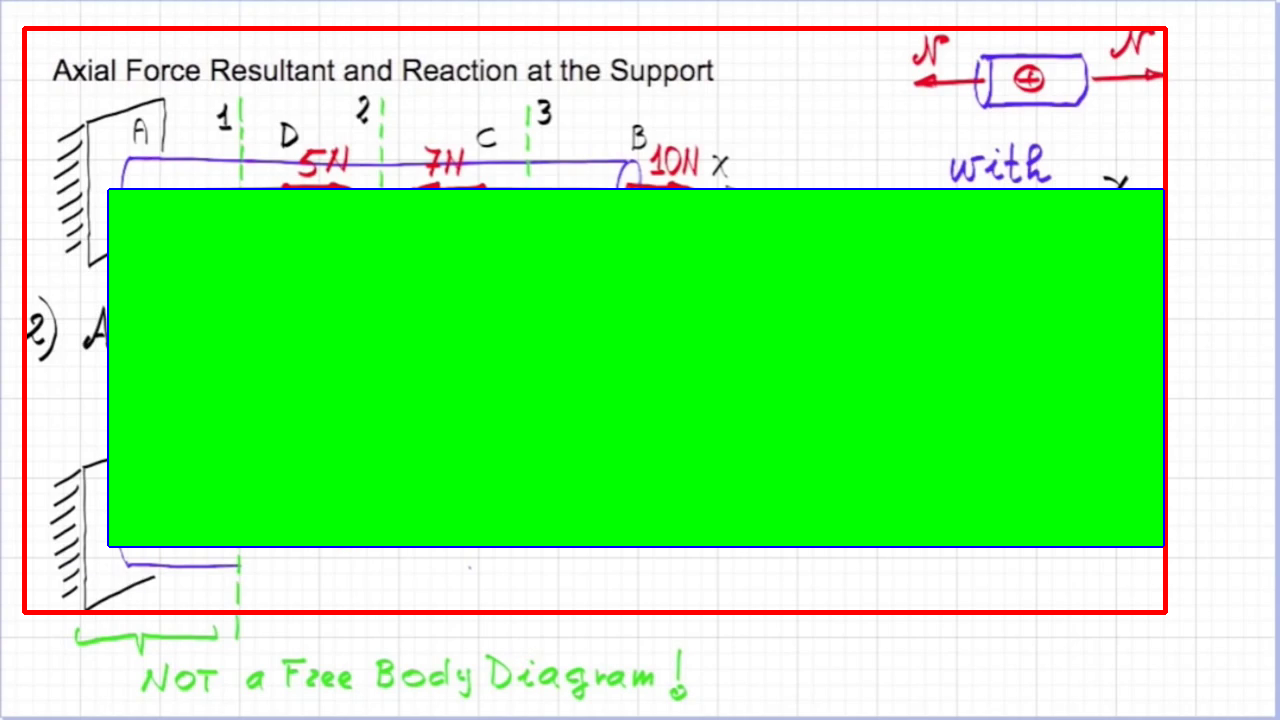 Axial Force Resultant and Reaction at the Support
N N
1 2 3
A D C B
5N 7N 10N x
with
2) A
NOT a Free Body Diagram!